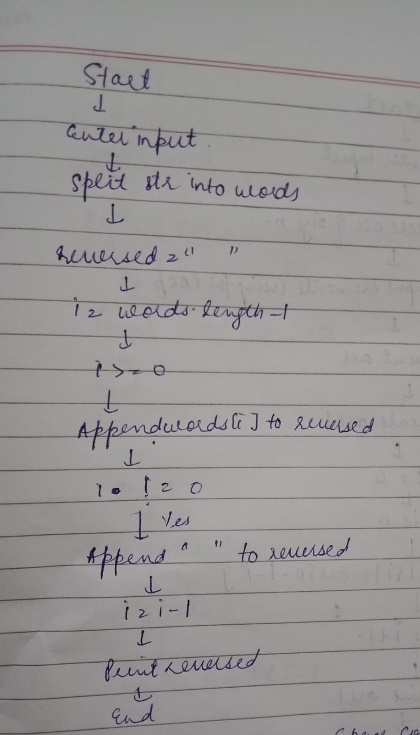 Start
↓
Enter input
↓
Split str into words
↓
reversed = " "
↓
i = words.length-1
↓
i >= 0
↓
Append words[i] to reversed
↓
i != 0
↓ Yes
Append " " to reversed
↓
i = i-1
↓
Print reversed
↓
End